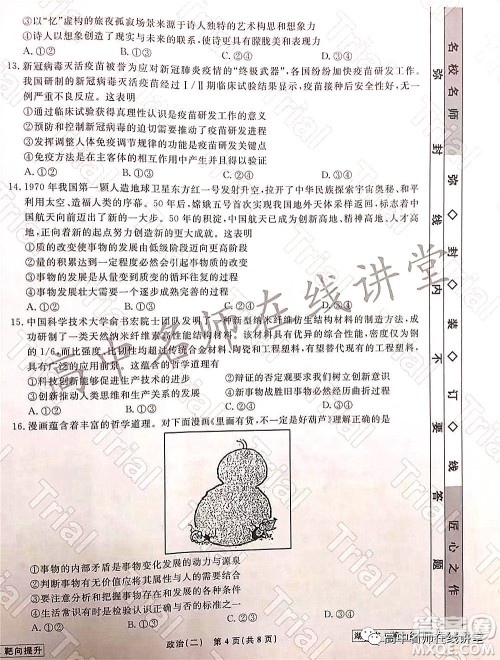 ③以“忆”虚构的旅夜孤寂场景来源于诗人独特的艺术构思和想象力
④诗人以想象创造了现实与未来的联系，使诗更具有朦胧美和浪漫美
A.①② B.①④ C.②③ D.③④
13.新冠病毒灭活疫苗被誉为应对新冠肺炎疫情的“终极武器”，各国纷纷加快疫苗研发工作。
我国研制的新冠病毒灭活疫苗经过Ⅰ/Ⅱ期临床试验结果显示，疫苗接种后安全性好，无一
例严重不良反应。这表明
①通过临床试验获得真理性认识是疫苗研发工作的意义
②预防和控制新冠病毒的迫切需要推动了疫苗研发工作的进程
③发挥调整人体免疫调节规律的功能是疫苗研发关键点
④免疫方法是在主客观的相互作用中产生并且得以验证
A.①② B.①③ C.②④ D.③④
14.1970年我国第一颗人造地球卫星东方红一号发射升空，拉开了中华民族探索宇宙奥秘、和平
利用太空、造福人类的序幕。50年后，嫦娥五号首次实现我国地外天体采样返回，代表着中国
航天向前迈出了新的一大步。50年的积淀，中国航天已成为创新高地、精神高地、人才高地，
正向着新的起点努力创造新的更大发展。这表明
①质的改变使事物的发展由低级阶段迈向更高阶段
②量的积累达到一定程度必然会引起中国航天的发展
③事物的发展是从量变到质变的循环往复的过程
④事物发展壮大需要一个逐步成熟完善的过程
A.①② B.①④ C.②③ D.③④
15.中国科学技术大学俞书宏院士团队发明了一种新型纳米纤维仿生结构材料的制造方法，成
功研制了一类天然纳米纤维素高性能结构材料。该材料具有优异的综合性能，密度仅为钢
的1/6，而比强度、比韧性均超过传统合金材料、陶瓷和工程塑料，有望替代现有的工程塑料，具
有广泛的应用前景。这蕴含的哲学道理有
①科技创新能够推动社会生产力的发展 ②辩证的否定观要求我们树立创新意识
③创新推动人类思维和生产关系的发展 ④新事物战胜旧事物必然经历曲折过程
A.①② B.①③ C.②④ D.③④
16.漫画蕴含着丰富的哲学道理。对下面漫画《里面有货，不一定是好葫芦》理解正确的是
①事物的内部矛盾是事物变化发展的动力与源泉
②判断事物有无价值应将其属性与人的需要结合
③善于分析矛盾的特殊性是正确认识事物的基础
④生活常识有时是对已知条件的错误或者颠倒反映
A.①② B.①④ C.②③ D.③④
政治(二) 第4页(共8页)
靶向提升
名校名师
弥封线内不要答题
弥◇封◇装◇订◇线
匠心之作
高中名师在线讲堂
高中名师在线讲堂
Trial